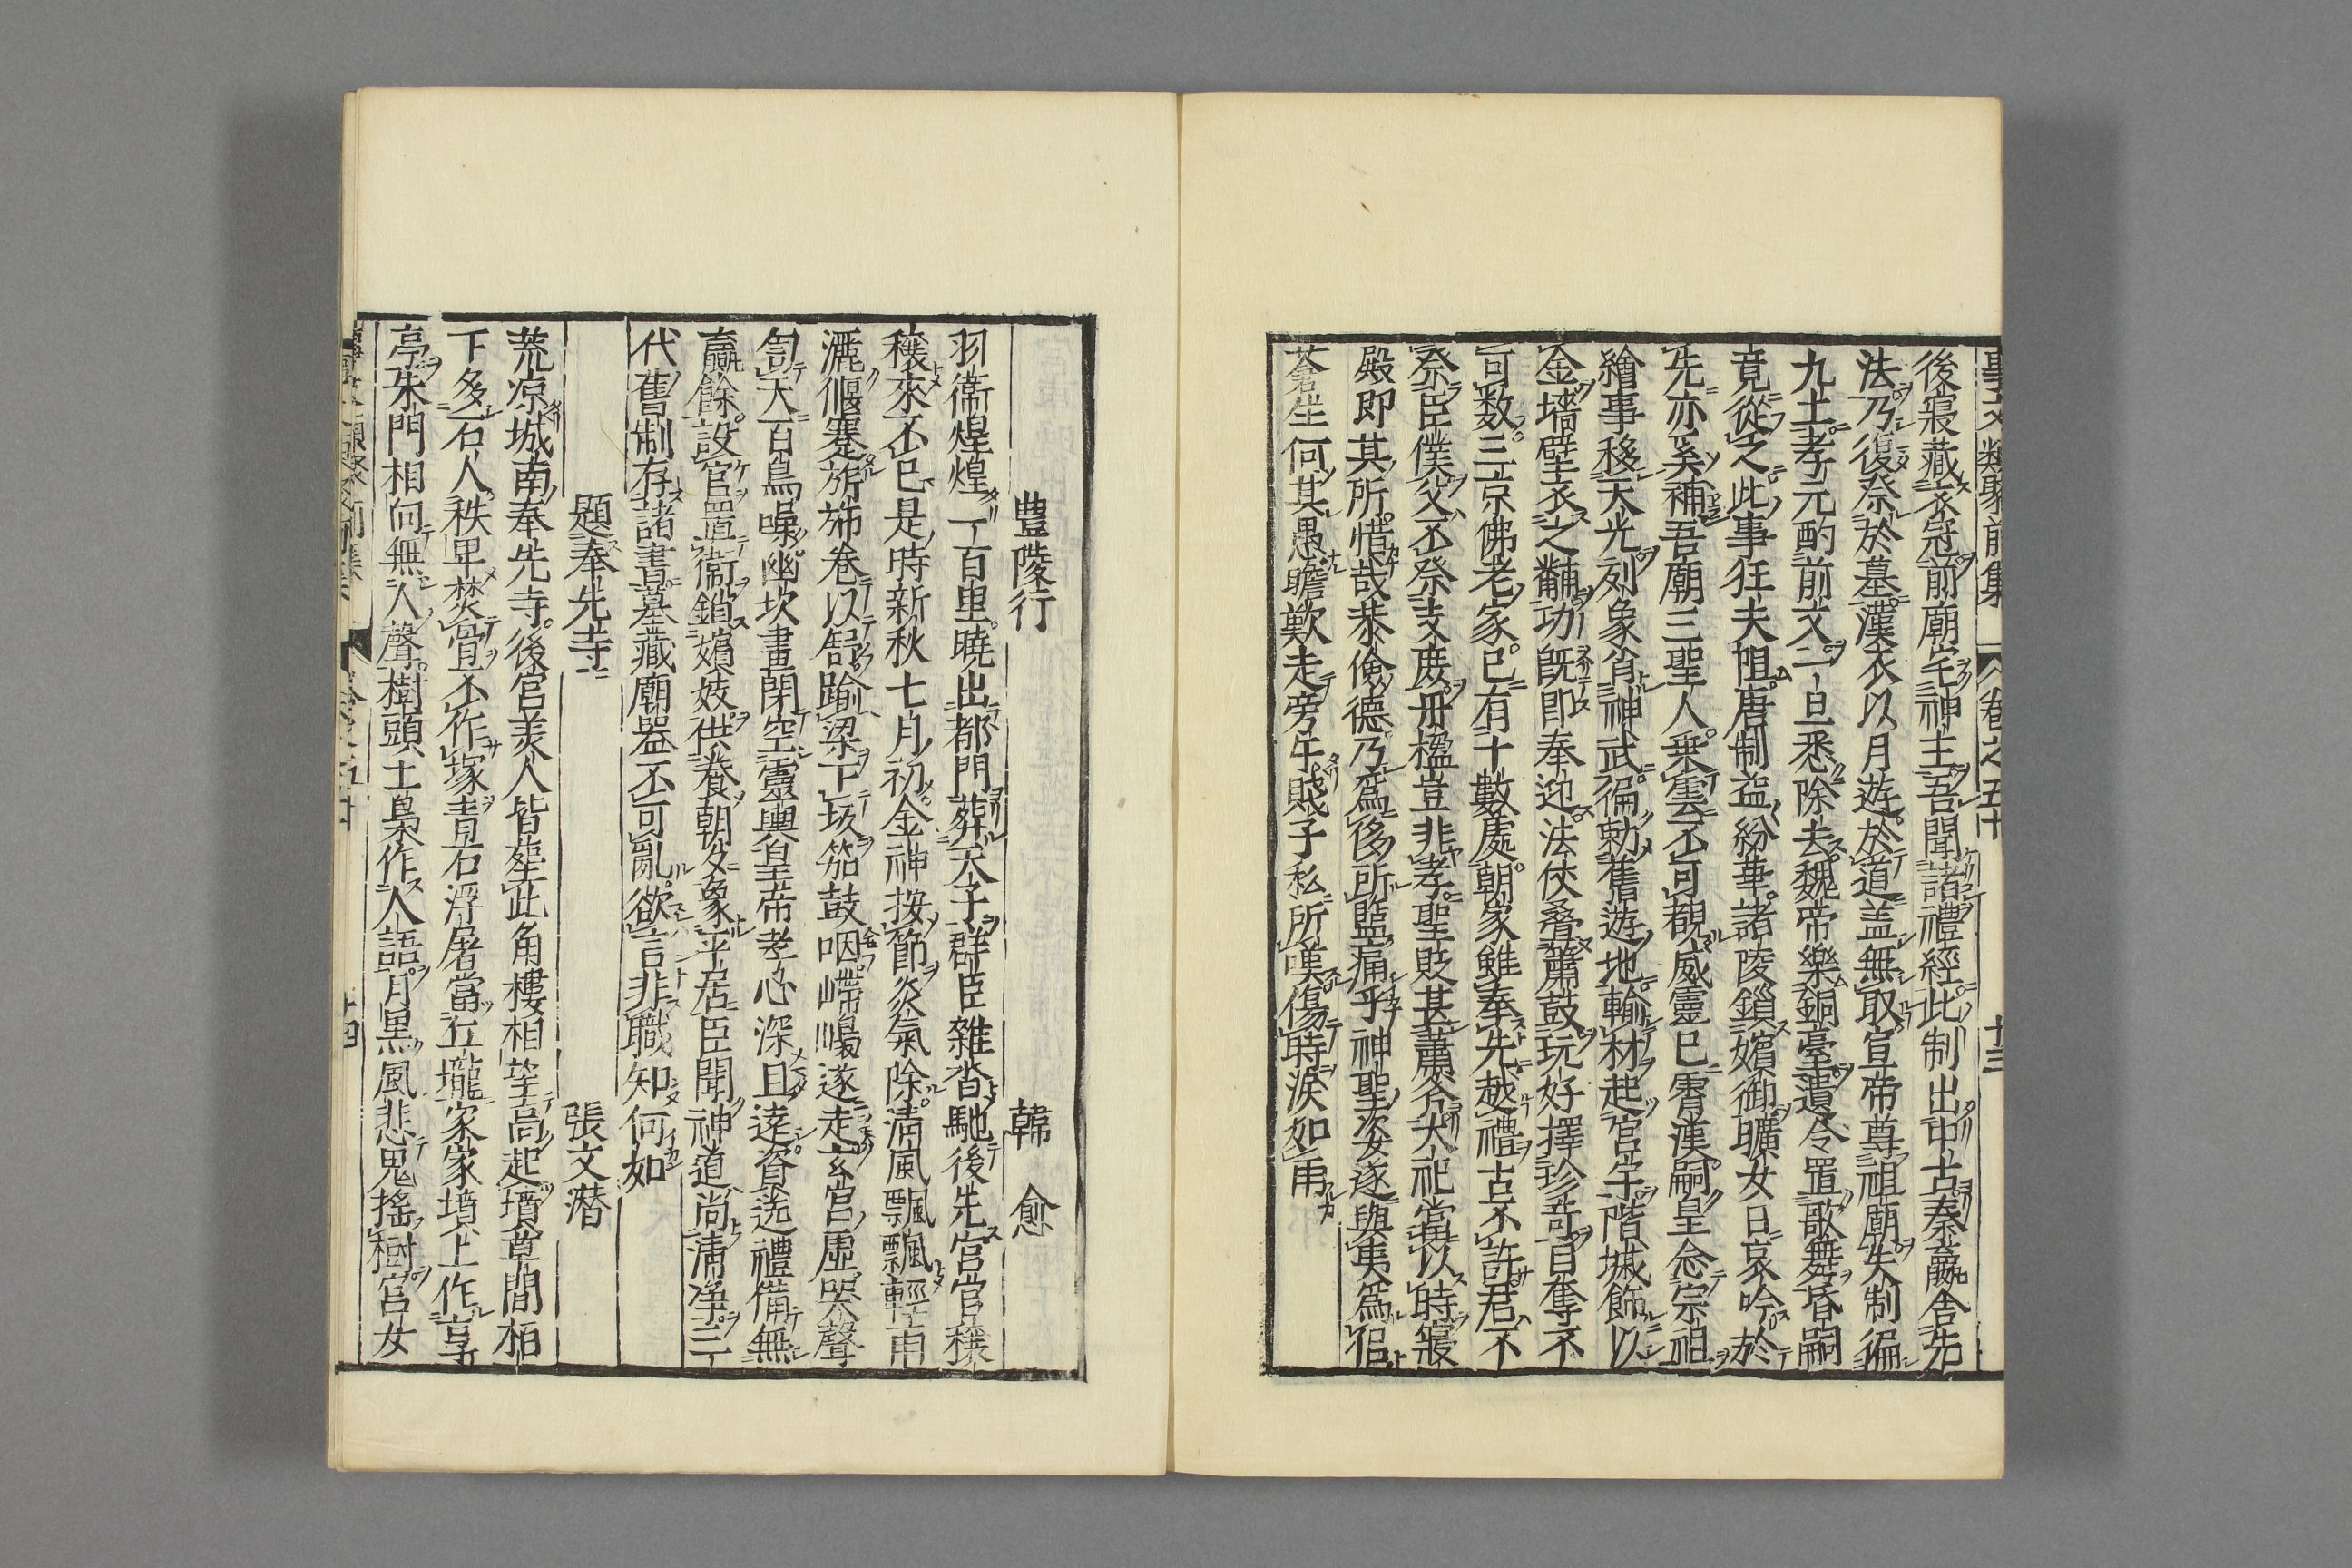 事文類聚前集 卷之五十 十三
後寝藏衣冠前廟宅神主吾聞諸禮經此制出中古秦嬴舍先
法乃復祭於墓漢衣以月遊於道盖無取宣帝尊祖廟失制徧
九土孝元酌前文一旦悉除去魏帝樂銅臺遺令置歌舞昏嗣
竟從之此事狂夫阻唐制益紛華諸陵鎖嬪御曠女日哀吟於
先亦奚補吾廟三聖人乗雲不可覩威靈已霄漢嗣皇念宗祖
繪事移天光刻象肖神武徧勑舊遊地輸材起宫宇階墄飾以
金墻壁衣之黼功既即奉迎法伎叠蕭鼓玩好擇珍竒自奪不
可数三京佛老家已有十數處朝家雖奉先越禮古不許君不
祭臣僕父不祭支庻丹楹豈非孝聖貶甚蕭斧大祀當以時寢
殿即其所惜哉恭儉德乃爲侈所監痛乎神聖姿遂與夷爲侣
蒼生何其愚瞻歎走旁午賤子私所嘆傷時淚如雨
豊陵行 韓愈
羽衞煌煌一百里曉出都門葬天子群臣雜沓馳後先宫官穰
穰來不已是時新秋七月初金神按節炎氣除清風飄飄輕雨
灑偃蹇旂斾卷以舒踰梁下坂笳鼓咽嵽嵲遂走玄宫虚哭聲
訇天百鳥噪幽坎晝閉空靈輿皇帝孝心深且逺資送禮備無
贏餘設官置衞鎖嬪妓供養朝夕象平居臣聞神道尚清浄三
代舊制存諸書墓藏廟器不可亂欲言非職知何如
題奉先寺 張文潜
荒凉城南奉先寺後宫美人皆塟此角樓相望高起墳草間栢
下多石人秩卑焚骨不作塚青石浮屠當丘壠家家墳上作享
亭朱門相向無人聲樹頭土梟作人語月黒風悲鬼搖樹宫女
卷之五十 十四